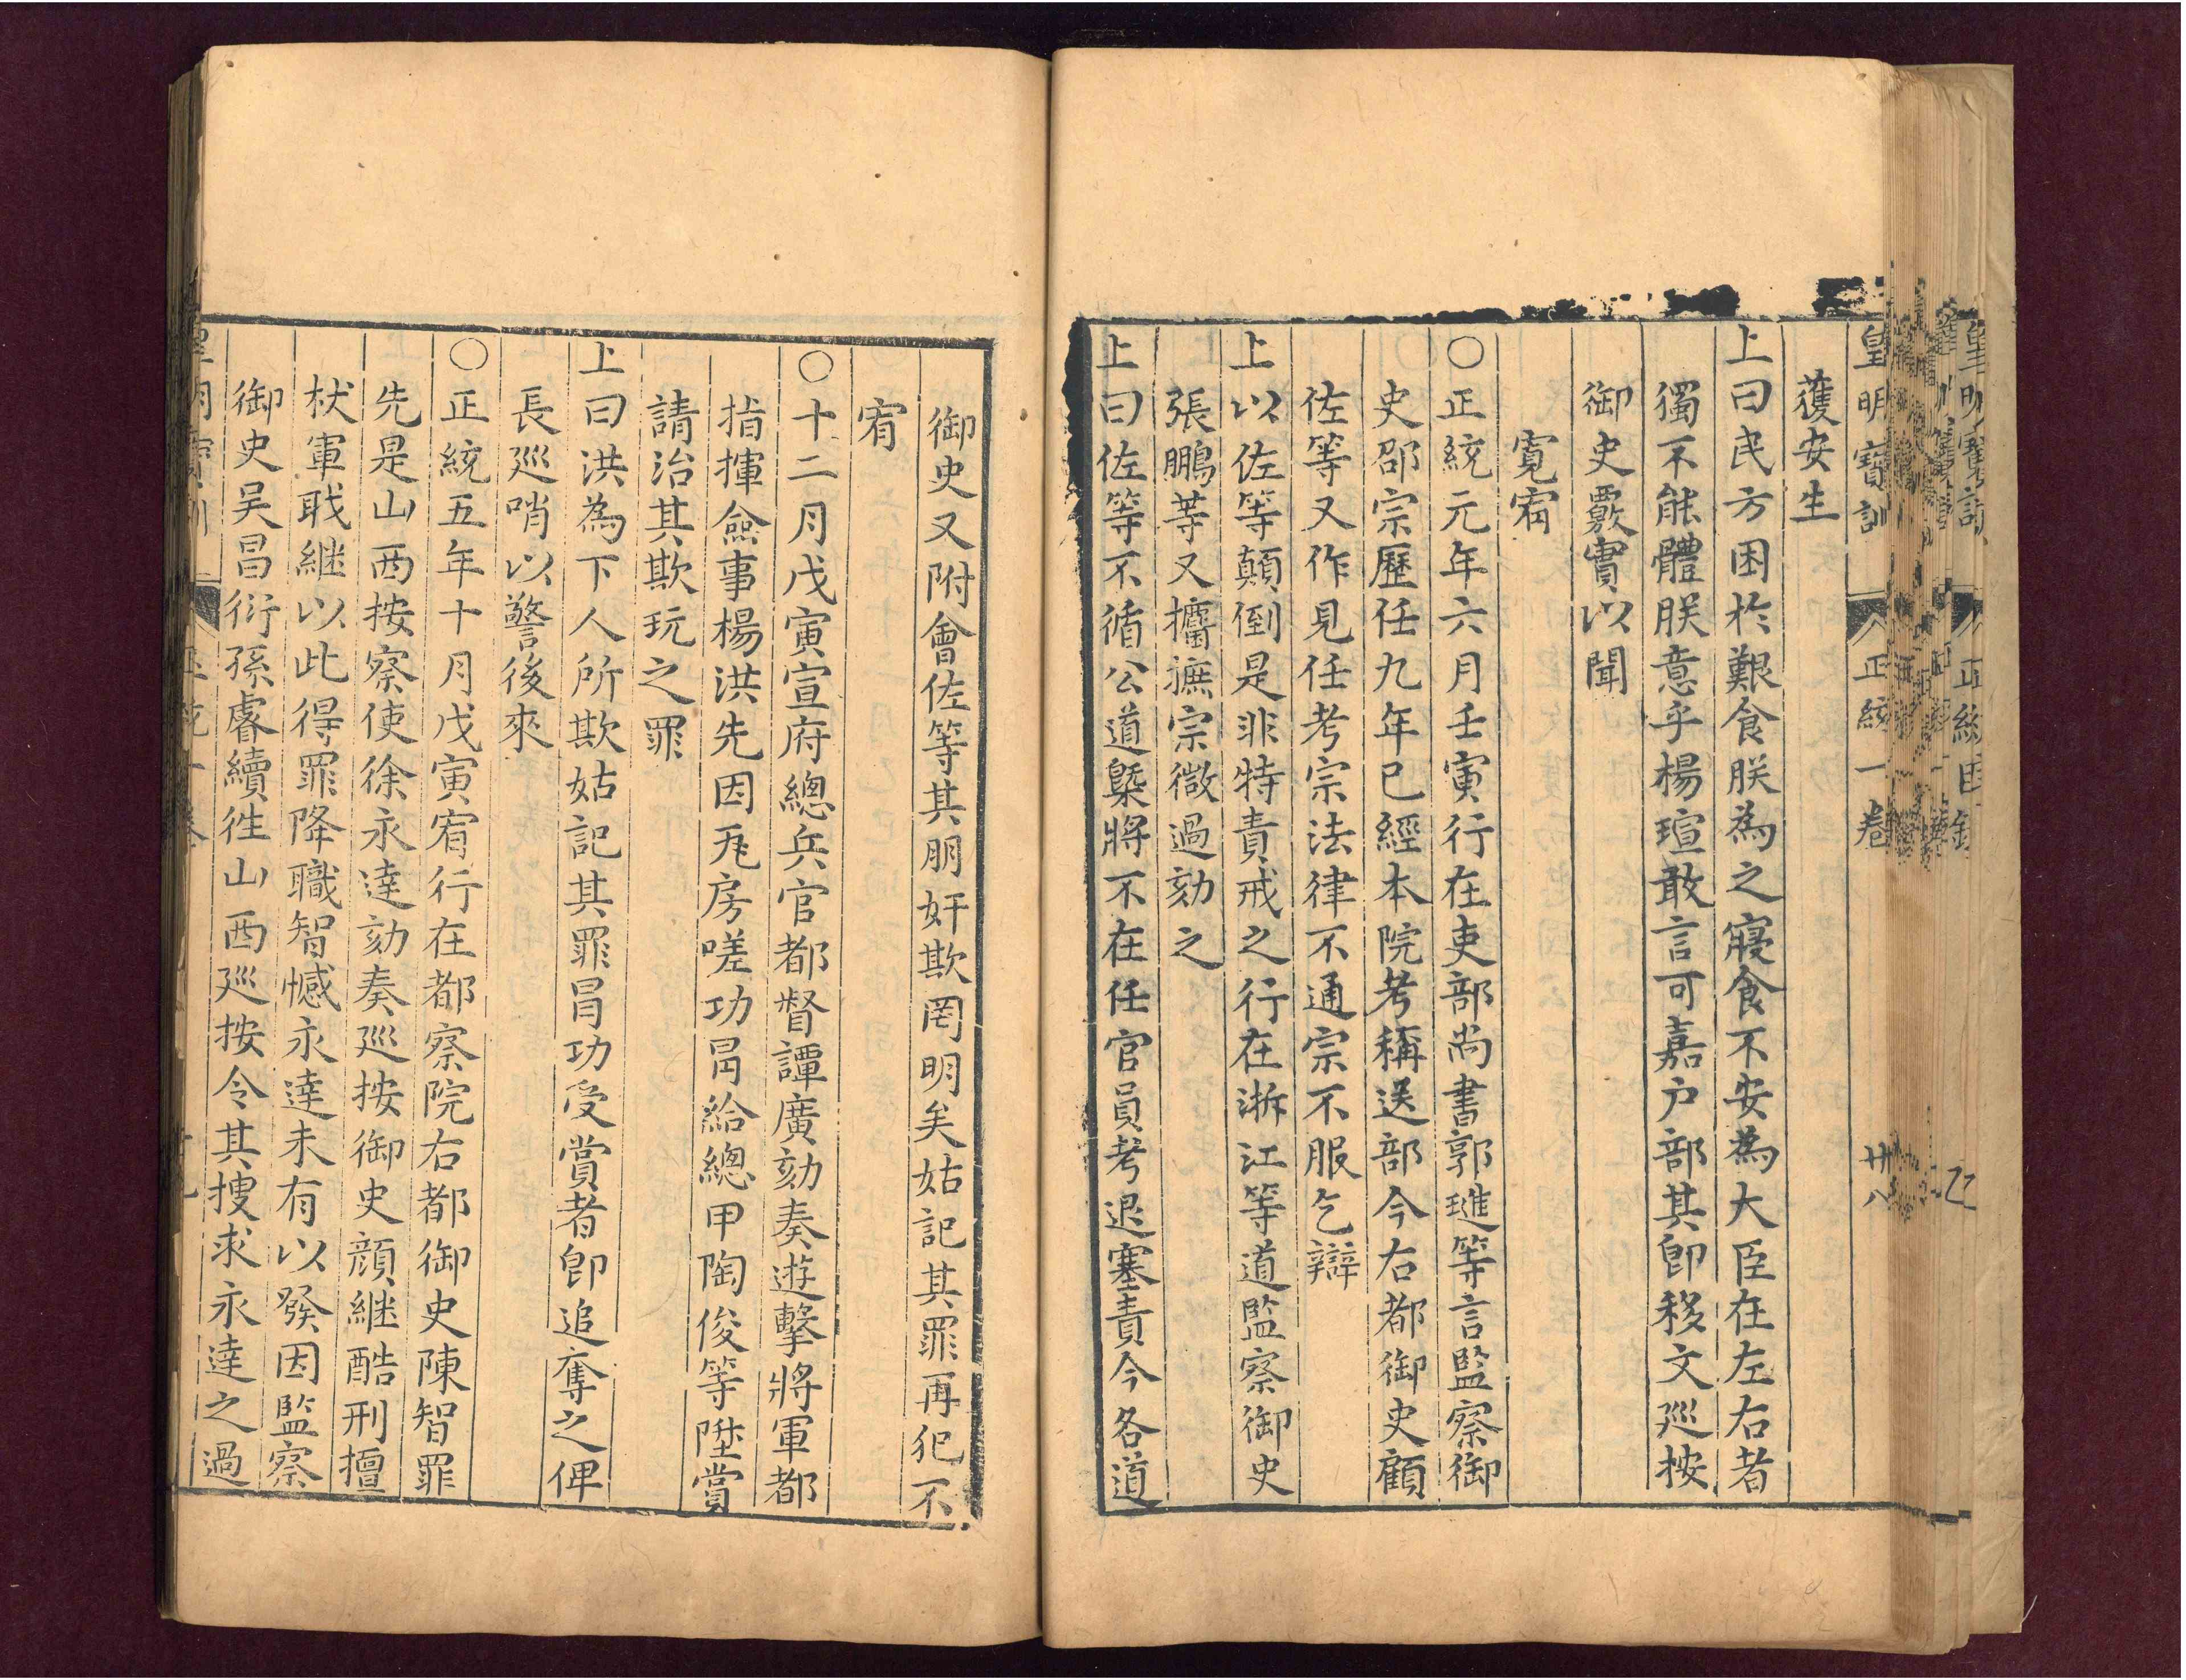 皇明寶訓 正統一卷 廿八
獲安生
上曰民方困於艱食朕為之寢食不安為大臣在左右者
獨不能體朕意乎楊瑄敢言可嘉户部其卽移文廵按
御史覈實以聞
寬宥
○正統元年六月壬寅行在吏部尚書郭璡等言監察御
史邵宗歷任九年已經本院考稱送部今右都御史顧
佐等又作見任考宗法律不通宗不服乞辯
上以佐等顛倒是非特責戒之行在浙江等道監察御史
張鵬等又攟摭宗微過劾之
上曰佐等不循公道槩將不在任官員考退塞責今各道
御史又附會佐等其朋奸欺罔明矣姑記其罪再犯不
宥
○十二月戊寅宣府總兵官都督譚廣劾奏遊擊將軍都
指揮僉事楊洪先因夜房嗟功冐給總甲陶俊等陞賞
請治其欺玩之罪
上曰洪為下人所欺姑記其罪冐功受賞者卽追奪之俾
長廵哨以警後來
○正統五年十月戊寅宥行在都察院右都御史陳智罪
先是山西按察使徐永達劾奏廵按御史顔継酷刑擅
杖軍職継以此得罪降職智憾永達未有以發因監察
御史吳昌衍孫睿續徃山西廵按令其搜求永達之過